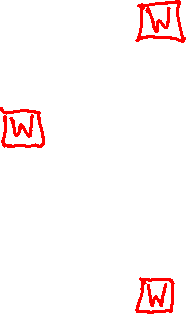 W
W
W